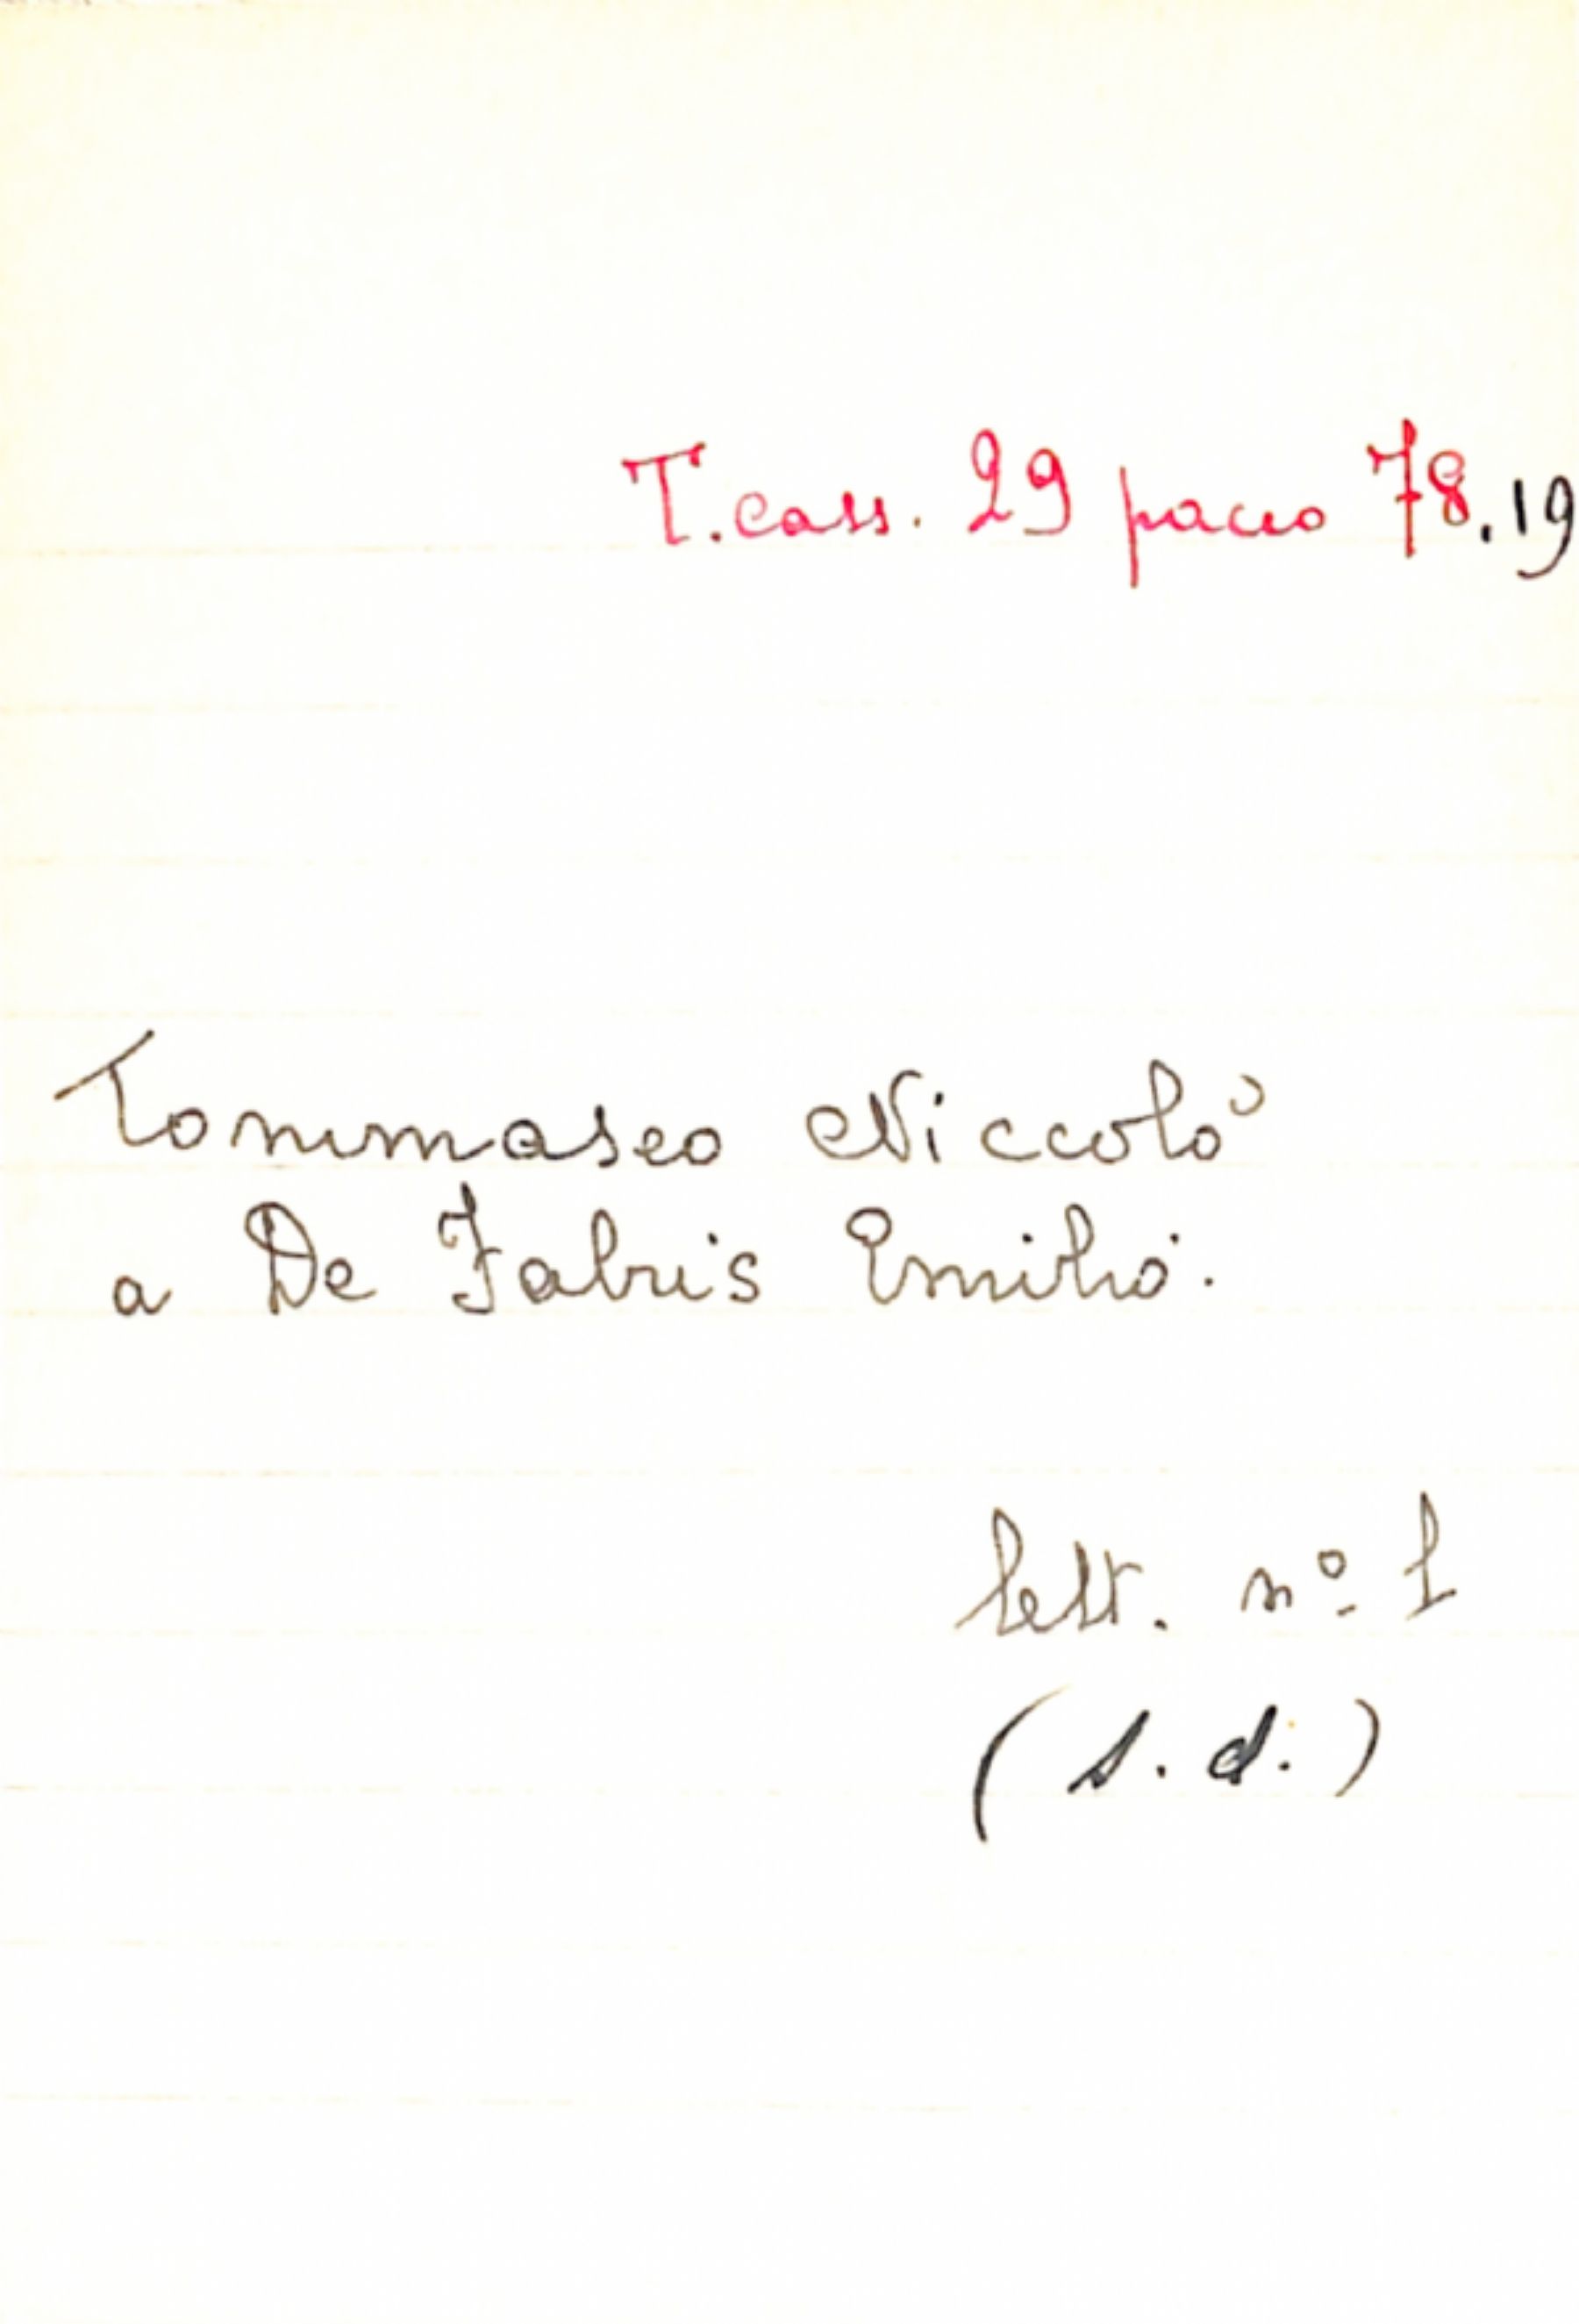 T. cass. 29 pacco 78.19
Tommaseo Niccolò
a De Fabris Emilio.
lett. nº 1
(s. d.)